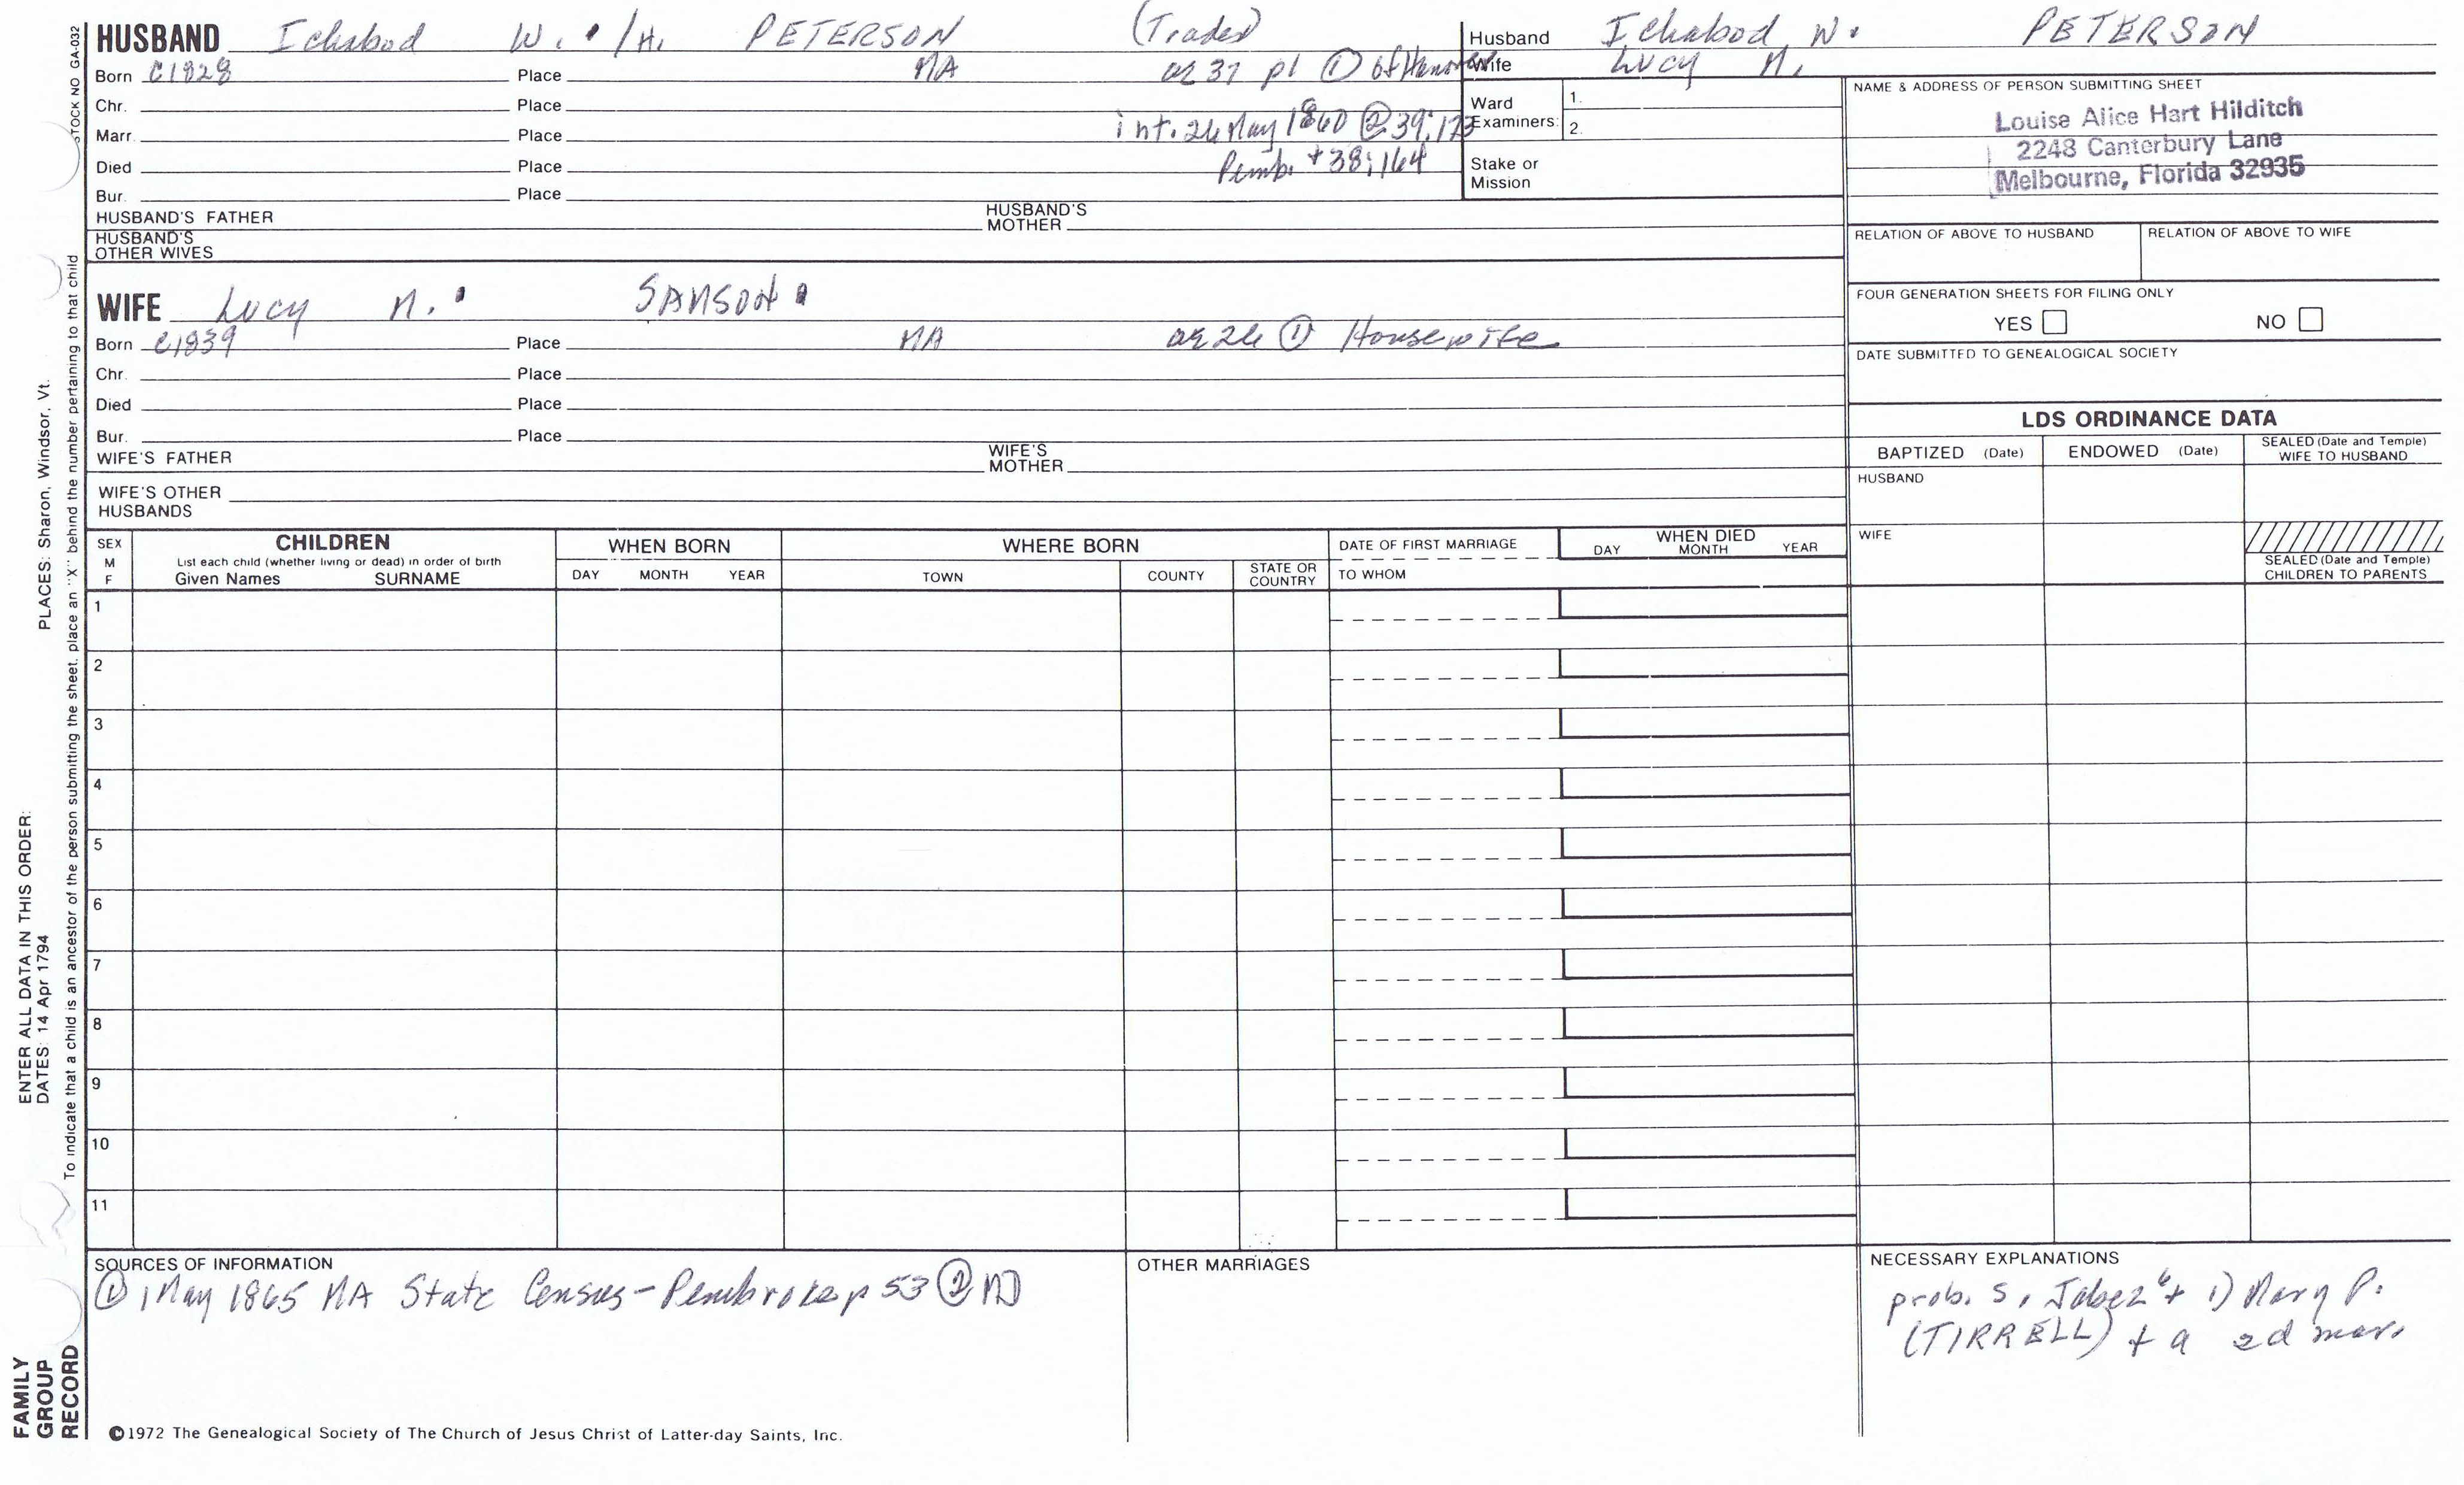 HUSBAND Ichabod W. /H. PETERSON (Trader)
Born c1828 Place MA ae 37 pl ① of Hanover
Chr. Place
Marr. Place int. 26 May 1860 ② 39:173
Died Place Pemb. + 38:164
Bur. Place
HUSBAND'S FATHER HUSBAND'S MOTHER
HUSBAND'S
OTHER WIVES
Husband Ichabod W. PETERSON
Wife Lucy M.
Ward
Examiners: 1.
2.
Stake or
Mission
NAME & ADDRESS OF PERSON SUBMITTING SHEET
Louise Alice Hart Hilditch
2248 Canterbury Lane
Melbourne, Florida 32935
RELATION OF ABOVE TO HUSBAND RELATION OF ABOVE TO WIFE
FOUR GENERATION SHEETS FOR FILING ONLY
YES NO
DATE SUBMITTED TO GENEALOGICAL SOCIETY
WIFE Lucy M. SAMSON
Born c1839 Place MA ae 26 ① Housewife
Chr. Place
Died Place
Bur. Place
WIFE'S FATHER WIFE'S MOTHER
WIFE'S OTHER
HUSBANDS
LDS ORDINANCE DATA
BAPTIZED (Date) ENDOWED (Date) SEALED (Date and Temple) WIFE TO HUSBAND
HUSBAND
WIFE
SEALED (Date and Temple)
CHILDREN TO PARENTS
SEX
M
F
CHILDREN
List each child (whether living or dead) in order of birth
Given Names SURNAME
WHEN BORN
DAY MONTH YEAR
WHERE BORN
TOWN COUNTY STATE OR COUNTRY
DATE OF FIRST MARRIAGE
TO WHOM
WHEN DIED
DAY MONTH YEAR
1
2
3
4
5
6
7
8
9
10
11
SOURCES OF INFORMATION
① 1 May 1865 MA State Census - Pembroke p 53 ②
OTHER MARRIAGES
NECESSARY EXPLANATIONS
prob. s. Jabez⁶ + 1) Mary P.
(TIRRELL) + a 2d mar.
©1972 The Genealogical Society of The Church of Jesus Christ of Latter-day Saints, Inc.
STOCK NO GA-032
PLACES: Sharon, Windsor, Vt.
To indicate that a child is an ancestor of the person submitting the sheet, place an "X" behind the number pertaining to that child
ENTER ALL DATA IN THIS ORDER:
DATES: 14 Apr 1794
FAMILY
GROUP
RECORD